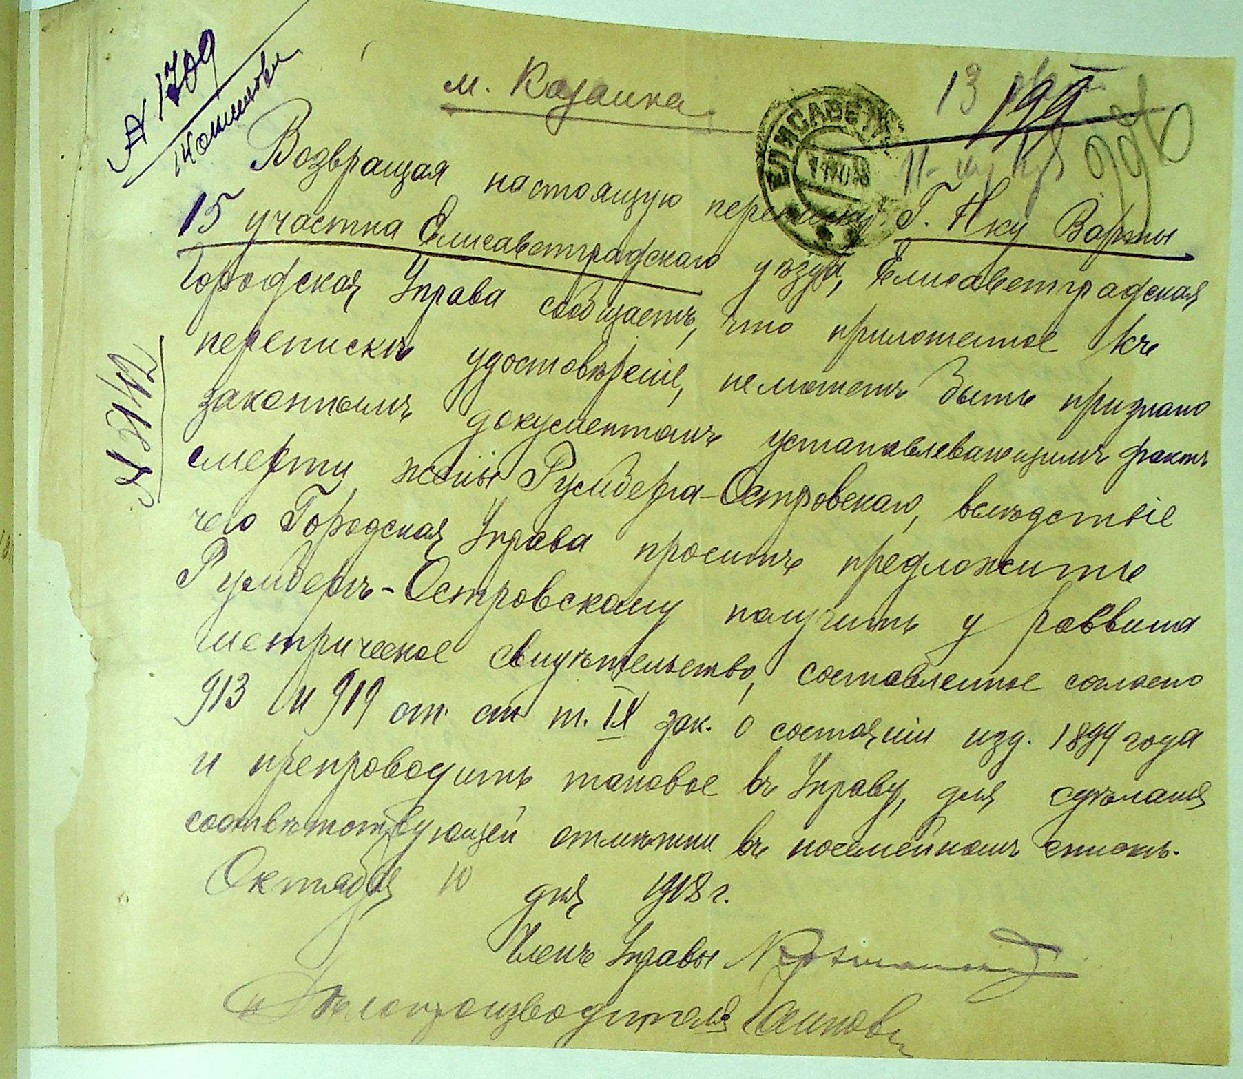 № 1709
м. Казанка
13
199
ЕЛИСАВЕТГР
Возвращая настоящую переписку Г. Н-ку Варты
15 участка Елисаветградскаго уезда, Елисаветградская
Городская Управа сообщаетъ, что приложенное къ
перепискѣ удостовѣреніе, неможетъ быть признано
законнымъ документомъ устанавлевающимъ фактъ
смерти жены Румберга-Островскаго, вслѣдствіе
чего Городская Управа проситъ предложить
Румбергъ-Островскому получить у раввина
метрическое свидѣтельство, составленное согласно
913 и 919 ст. ст. т. IX зак. о состояніи изд. 1899 года
и препроводить таковое въ Управу, для сдѣланія
соотвѣтствующей отмѣтки въ посемейномъ спискѣ.
Октября 10 дня 1918 г.
Членъ Управы
Делопроизводитель
№ 3912